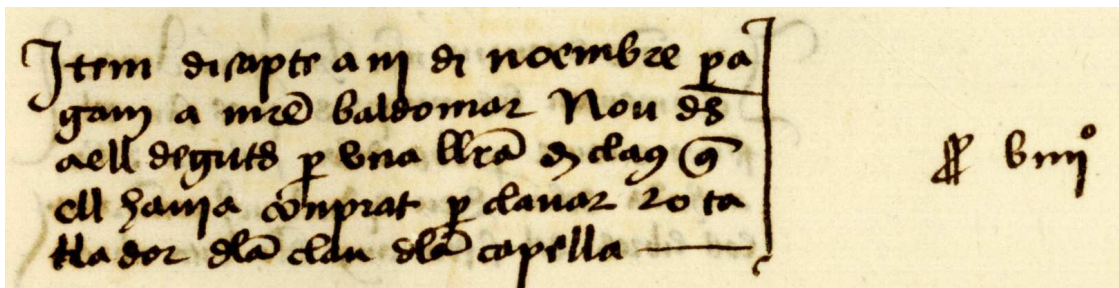 Item disapte a iij de noembre pa
gam a mrē baldomar Nou ds
a ell deguts p una llrā d claus q̄
ell hauia conprat p clauar lo ta
llador dla clau dla capella
viiij°